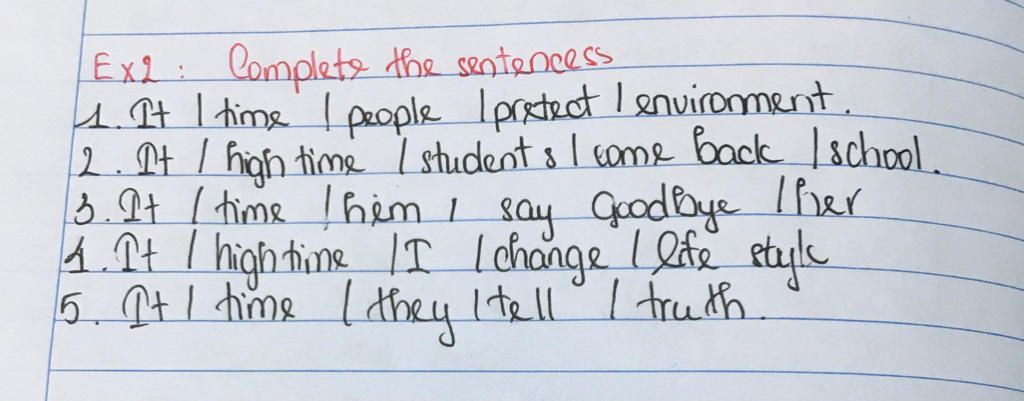 Ex2 : Complete the sentencess
1. It / time / people / protect / environment.
2. It / high time / students / come back / school.
3. It / time / him / say Goodbye / her
4. It / high time / I / change / life style
5. It / time / they / tell / truth.